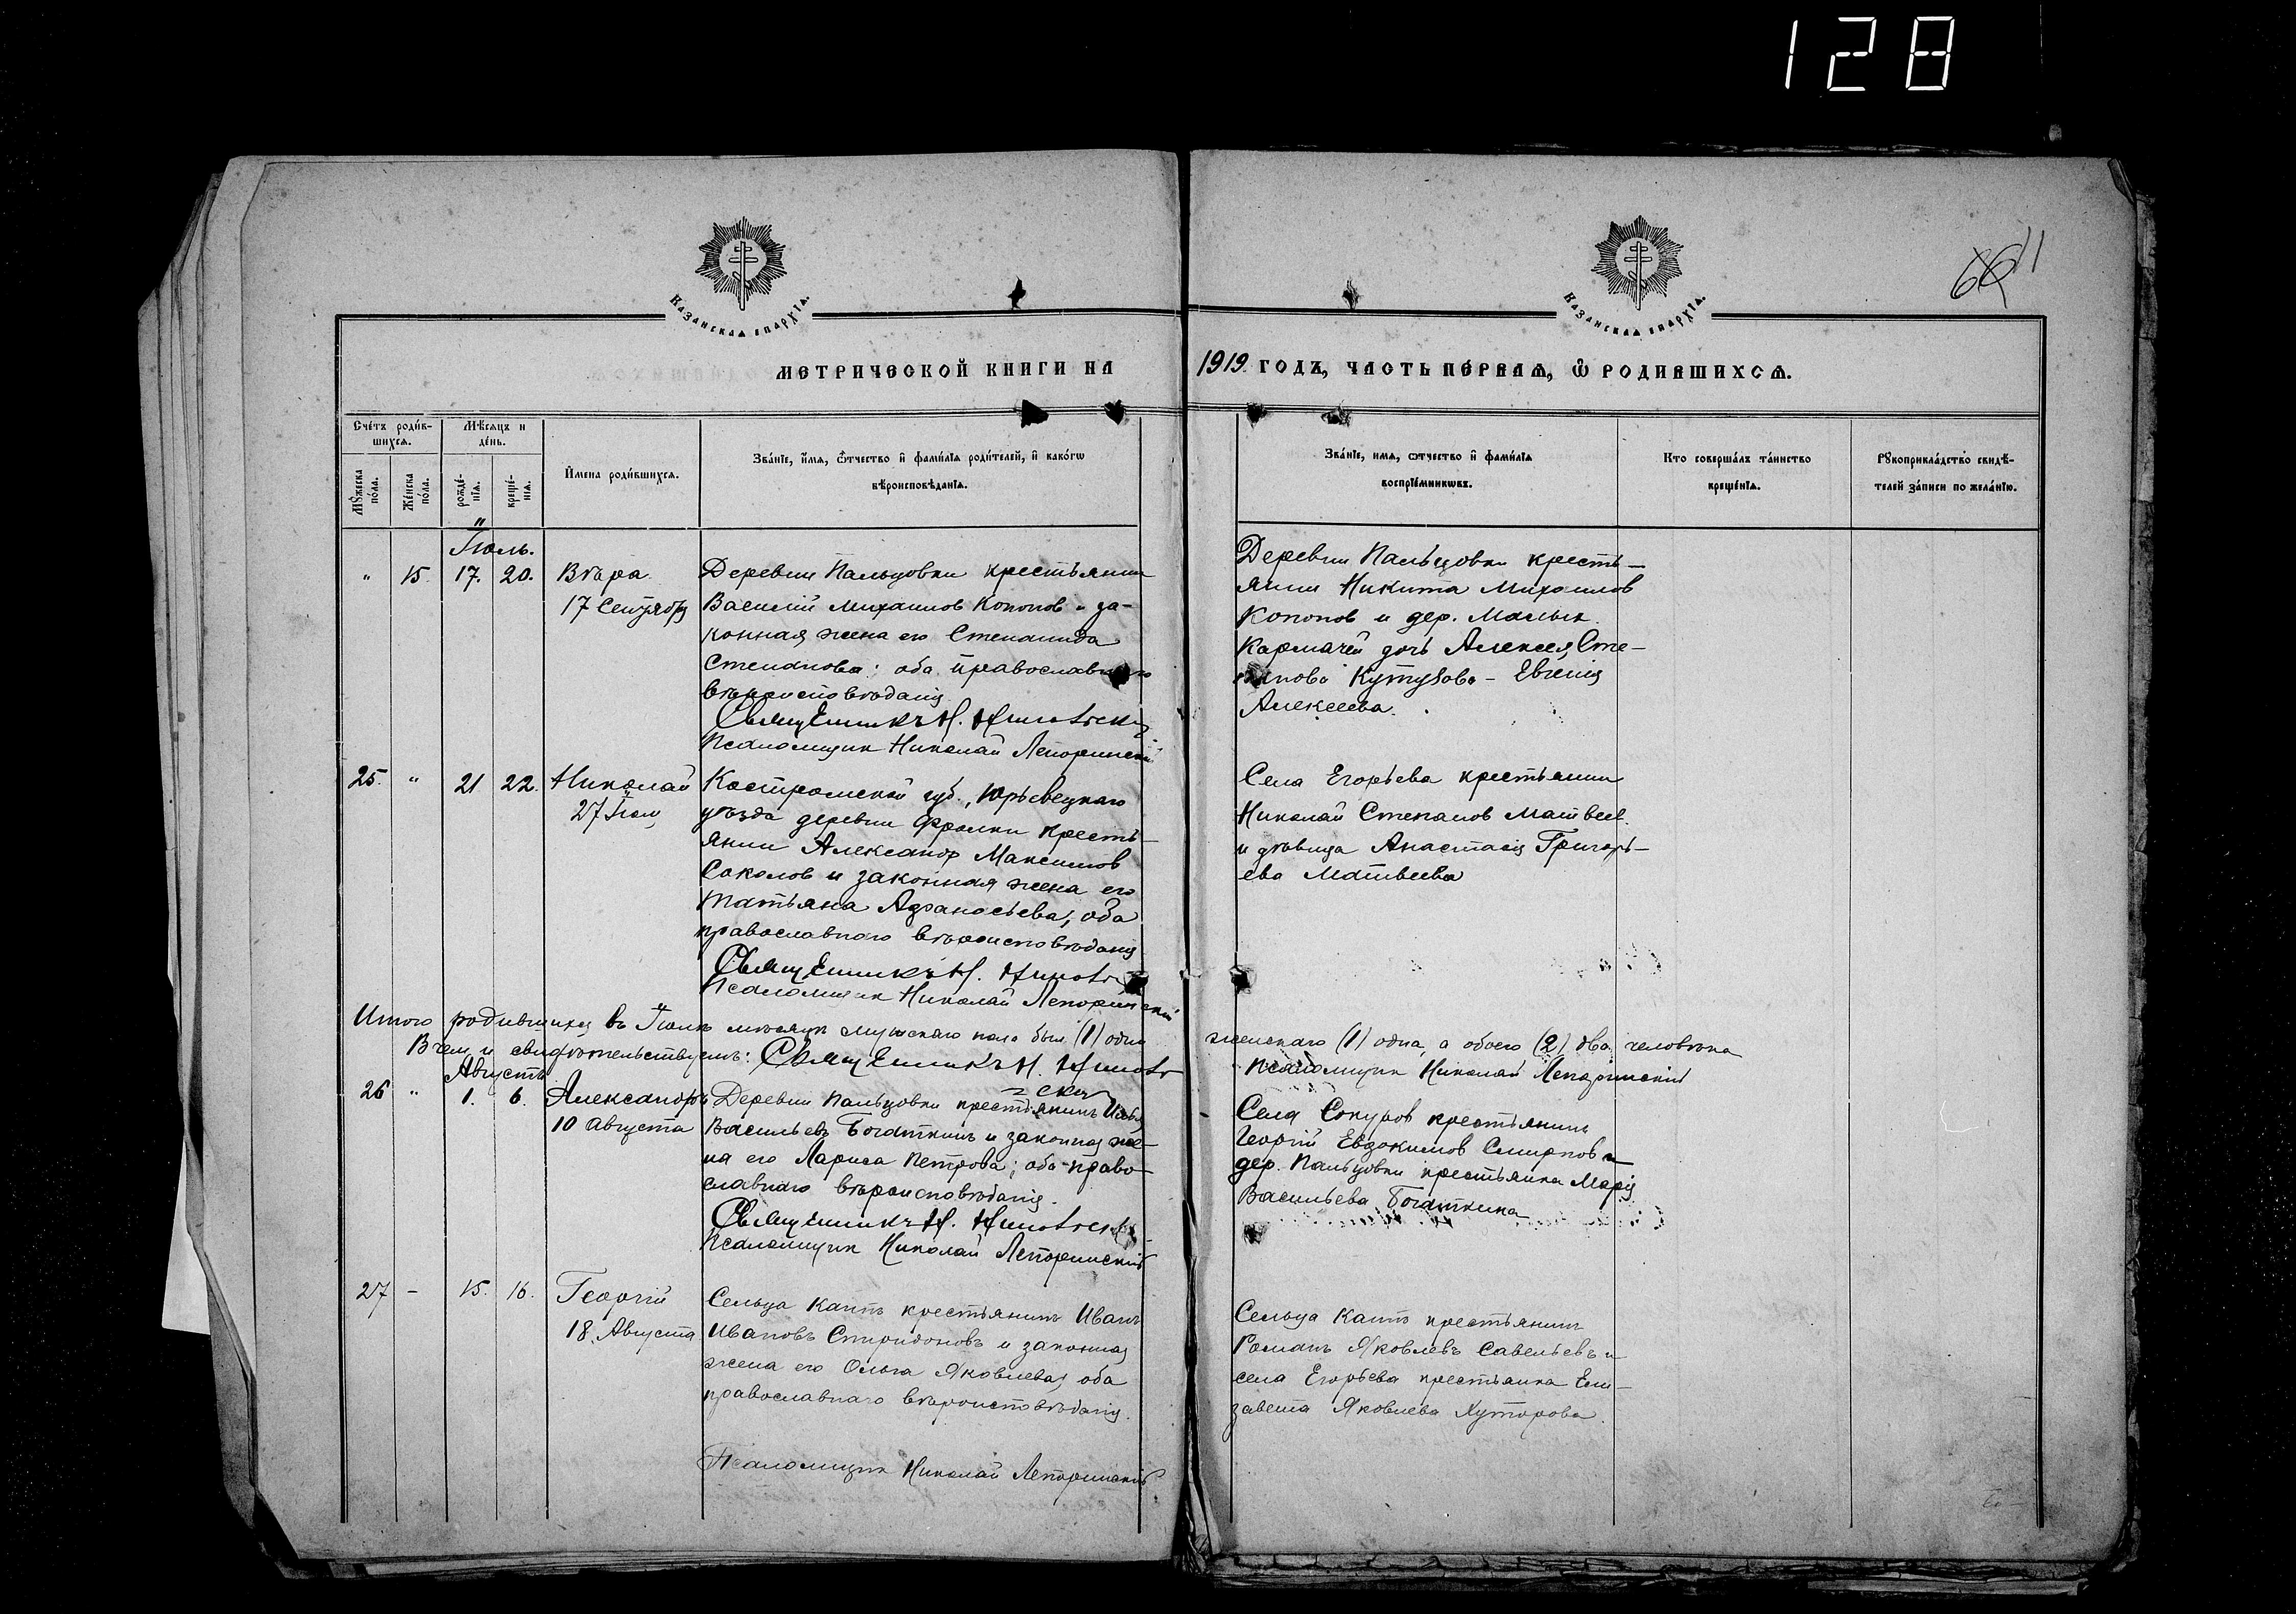 128
66 11
Казанская епархїѧ.
Казанская епархїѧ.
МЕТРИЧЕСКОЙ КНИГИ НА
1919 ГОДЪ, ЧАСТЬ ПЕ́РВАѦ, Ѽ РОДИВШИХСѦ.
Сче́тъ роди́в-
шихсѧ.
Мѣ́сѧцъ и
де́нь.
Мꙋ́жеска
по́ла.
Же́нска
по́ла.
рожде́-
нїѧ.
креще́-
нїѧ.
И҆мена роди́вшихсѧ.
Зва́нїе, и҆́мѧ, ѻ҆́тчество и҆ фами́лїѧ роди́телей, и҆ како́гѡ
вѣроисповѣ́данїѧ.
Зва́нїе, имѧ, ѻтчество и҆ фами́лїѧ
воспрїе́мникѡвъ.
Кто соверша́лъ та́инство
креще́нїѧ.
Рꙋкоприкла́дство свидѣ́-
телей за́писи по жела́нїю.
Іюль.
" 15. 17. 20. Вѣра
17 Сентября
Деревни Пальцовки крестьянин
Василій Михаилов Кононов и за-
конная жена его Степанида
Степанова: оба православнаго
вѣроисповѣданія
Священникъ Н.
Псаломщик Николай Лепоринский
Деревни Пальцовки кресть-
янин Никита Михаилов
Кононов и дер. Малых
Кармачей дочь Алексея Сте-
панова Кутузова - Евгенія
Алексеева.
25. " 21 22. Николай
27 Іюля
Костромской губ., Юрьевецкаго
уѣзда деревни Фролки кресть-
янин Александр Максимов
Соколов и законная жена его
Татьяна Афанасьева, оба
православнаго вѣроисповѣданія
Священникъ Н.
Псаломщик Николай Лепоринский
Села Егорьева крестьянин
Николай Степанов Матвеев
и дѣвица Анастасія Григорь-
ева Матвеева
Итого родившихся въ Іюлѣ мѣсяцѣ мужскаго пола был (1) один женскаго (1) одна, а обоего (2) два человѣка
В чем и свидѣтельствуемъ: Священникъ Н. Псаломщик Николай Лепоринский
Августъ
26 " 1. 6. Александръ
10 Августа
Деревни Пальцовки крестьянинъ Илья
Васильевъ Богаткинъ и законная же-
на его Лариса Петрова; оба право-
славнаго вѣроисповѣданія.
Священникъ Н.
Псаломщик Николай Лепоринский
Села Сокуров крестьянин
Георгій Евдокимов Смирнов и
дер. Пальцовки крестьянка Марія
Васильева Богаткина
27 - 15. 16. Георгій
18. Августа
Сельца Каипъ крестьянинъ Иванъ
Ивановъ Спиридоновъ и законная
жена его Ольга Яковлева, оба
православнаго вѣроисповѣданія.
Псаломщик Николай Лепоринский
Сельца Каипъ крестьянинъ
Романъ Яковлевъ Савельевъ и
села Егорьева крестьянка Ели-
завета Яковлева Хуторова.